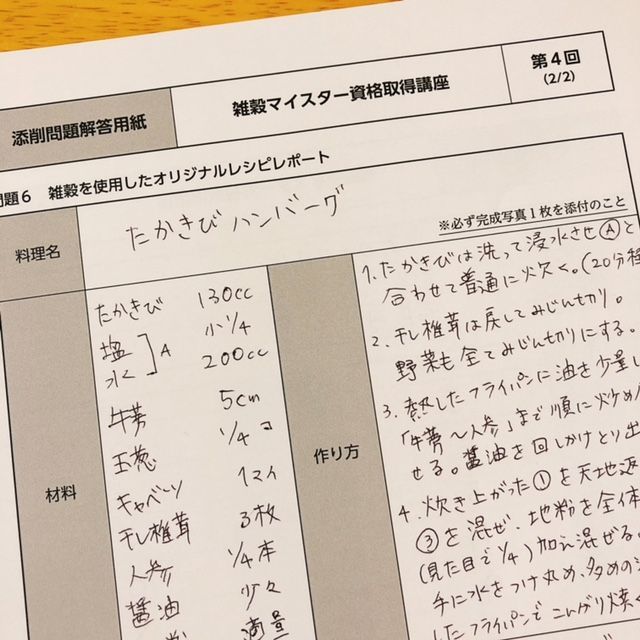 添削問題解答用紙
雑穀マイスター資格取得講座
第4回
(2/2)
問題6 雑穀を使用したオリジナルレシピレポート
料理名
たかきびハンバーグ
※必ず完成写真1枚を添付のこと
材料
たかきび 130cc
塩 小1/4
水 ]A 200cc
牛蒡 5cm
玉葱 1/4コ
キャベツ 1マイ
干し椎茸 3枚
人参 1/4本
醤油 少々
粉 適量
作り方
1. たかきびは洗って浸水させⒶと
合わせて普通に炊く。(20分程
2. 干し椎茸は戻してみじん切り。
野菜も全てみじん切りにする。
3. 熱したフライパンに油を少量し
「牛蒡〜人参」まで順に炒め
せる。醤油を回しかけとり出
4. 炊き上がった①を天地返
③を混ぜ、地粉を全体
(見た目で1/4)加え混ぜる。
手に水をつけ丸め、多めの
したフライパンでこんがり焼く